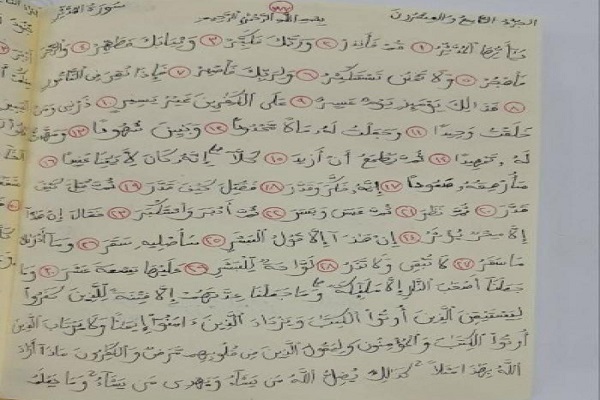 الجزء التاسع والعشرون بسم الله الرحمن الرحيم سورة المدثر
يَٰٓأَيُّهَا ٱلْمُدَّثِّرُ ١ قُمْ فَأَنذِرْ ٢ وَرَبَّكَ فَكَبِّرْ ٣ وَثِيَابَكَ فَطَهِّرْ ٤ وَٱلرُّجْزَ
فَٱهْجُرْ ٥ وَلَا تَمْنُن تَسْتَكْثِرُ ٦ وَلِرَبِّكَ فَٱصْبِرْ ٧ فَإِذَا نُقِرَ فِى ٱلنَّاقُورِ
٨ فَذَٰلِكَ يَوْمَئِذٍ يَوْمٌ عَسِيرٌ ٩ عَلَى ٱلْكَٰفِرِينَ غَيْرُ يَسِيرٍ ١٠ ذَرْنِى وَمَنْ
خَلَقْتُ وَحِيدًا ١١ وَجَعَلْتُ لَهُۥ مَالًا مَّمْدُودًا ١٢ وَبَنِينَ شُهُودًا ١٣ وَمَهَّدتُّ
لَهُۥ تَمْهِيدًا ١٤ ثُمَّ يَطْمَعُ أَنْ أَزِيدَ ١٥ كَلَّآ إِنَّهُۥ كَانَ لِءَايَٰتِنَا عَنِيدًا ١٦
سَأُرْهِقُهُۥ صَعُودًا ١٧ إِنَّهُۥ فَكَّرَ وَقَدَّرَ ١٨ فَقُتِلَ كَيْفَ قَدَّرَ ١٩ ثُمَّ قُتِلَ كَيْفَ
قَدَّرَ ٢٠ ثُمَّ نَظَرَ ٢١ ثُمَّ عَبَسَ وَبَسَرَ ٢٢ ثُمَّ أَدْبَرَ وَٱسْتَكْبَرَ ٢٣ فَقَالَ إِنْ هَٰذَآ
إِلَّا سِحْرٌ يُؤْثَرُ ٢٤ إِنْ هَٰذَآ إِلَّا قَوْلُ ٱلْبَشَرِ ٢٥ سَأُصْلِيهِ سَقَرَ ٢٦ وَمَآ أَدْرَىٰكَ
مَا سَقَرُ ٢٧ لَا تُبْقِى وَلَا تَذَرُ ٢٨ لَوَّاحَةٌ لِّلْبَشَرِ ٢٩ عَلَيْهَا تِسْعَةَ عَشَرَ ٣٠ وَمَا
جَعَلْنَآ أَصْحَٰبَ ٱلنَّارِ إِلَّا مَلَٰٓئِكَةً وَمَا جَعَلْنَا عِدَّتَهُمْ إِلَّا فِتْنَةً لِّلَّذِينَ كَفَرُوا۟
لِيَسْتَيْقِنَ ٱلَّذِينَ أُوتُوا۟ ٱلْكِتَٰبَ وَيَزْدَادَ ٱلَّذِينَ ءَامَنُوٓا۟ إِيمَٰنًا وَلَا يَرْتَابَ ٱلَّذِينَ
أُوتُوا۟ ٱلْكِتَٰبَ وَٱلْمُؤْمِنُونَ وَلِيَقُولَ ٱلَّذِينَ فِى قُلُوبِهِم مَّرَضٌ وَٱلْكَٰفِرُونَ مَاذَآ أَرَادَ
ٱللَّهُ بِهَٰذَا مَثَلًا كَذَٰلِكَ يُضِلُّ ٱللَّهُ مَن يَشَآءُ وَيَهْدِى مَن يَشَآءُ وَمَا يَعْلَمُ